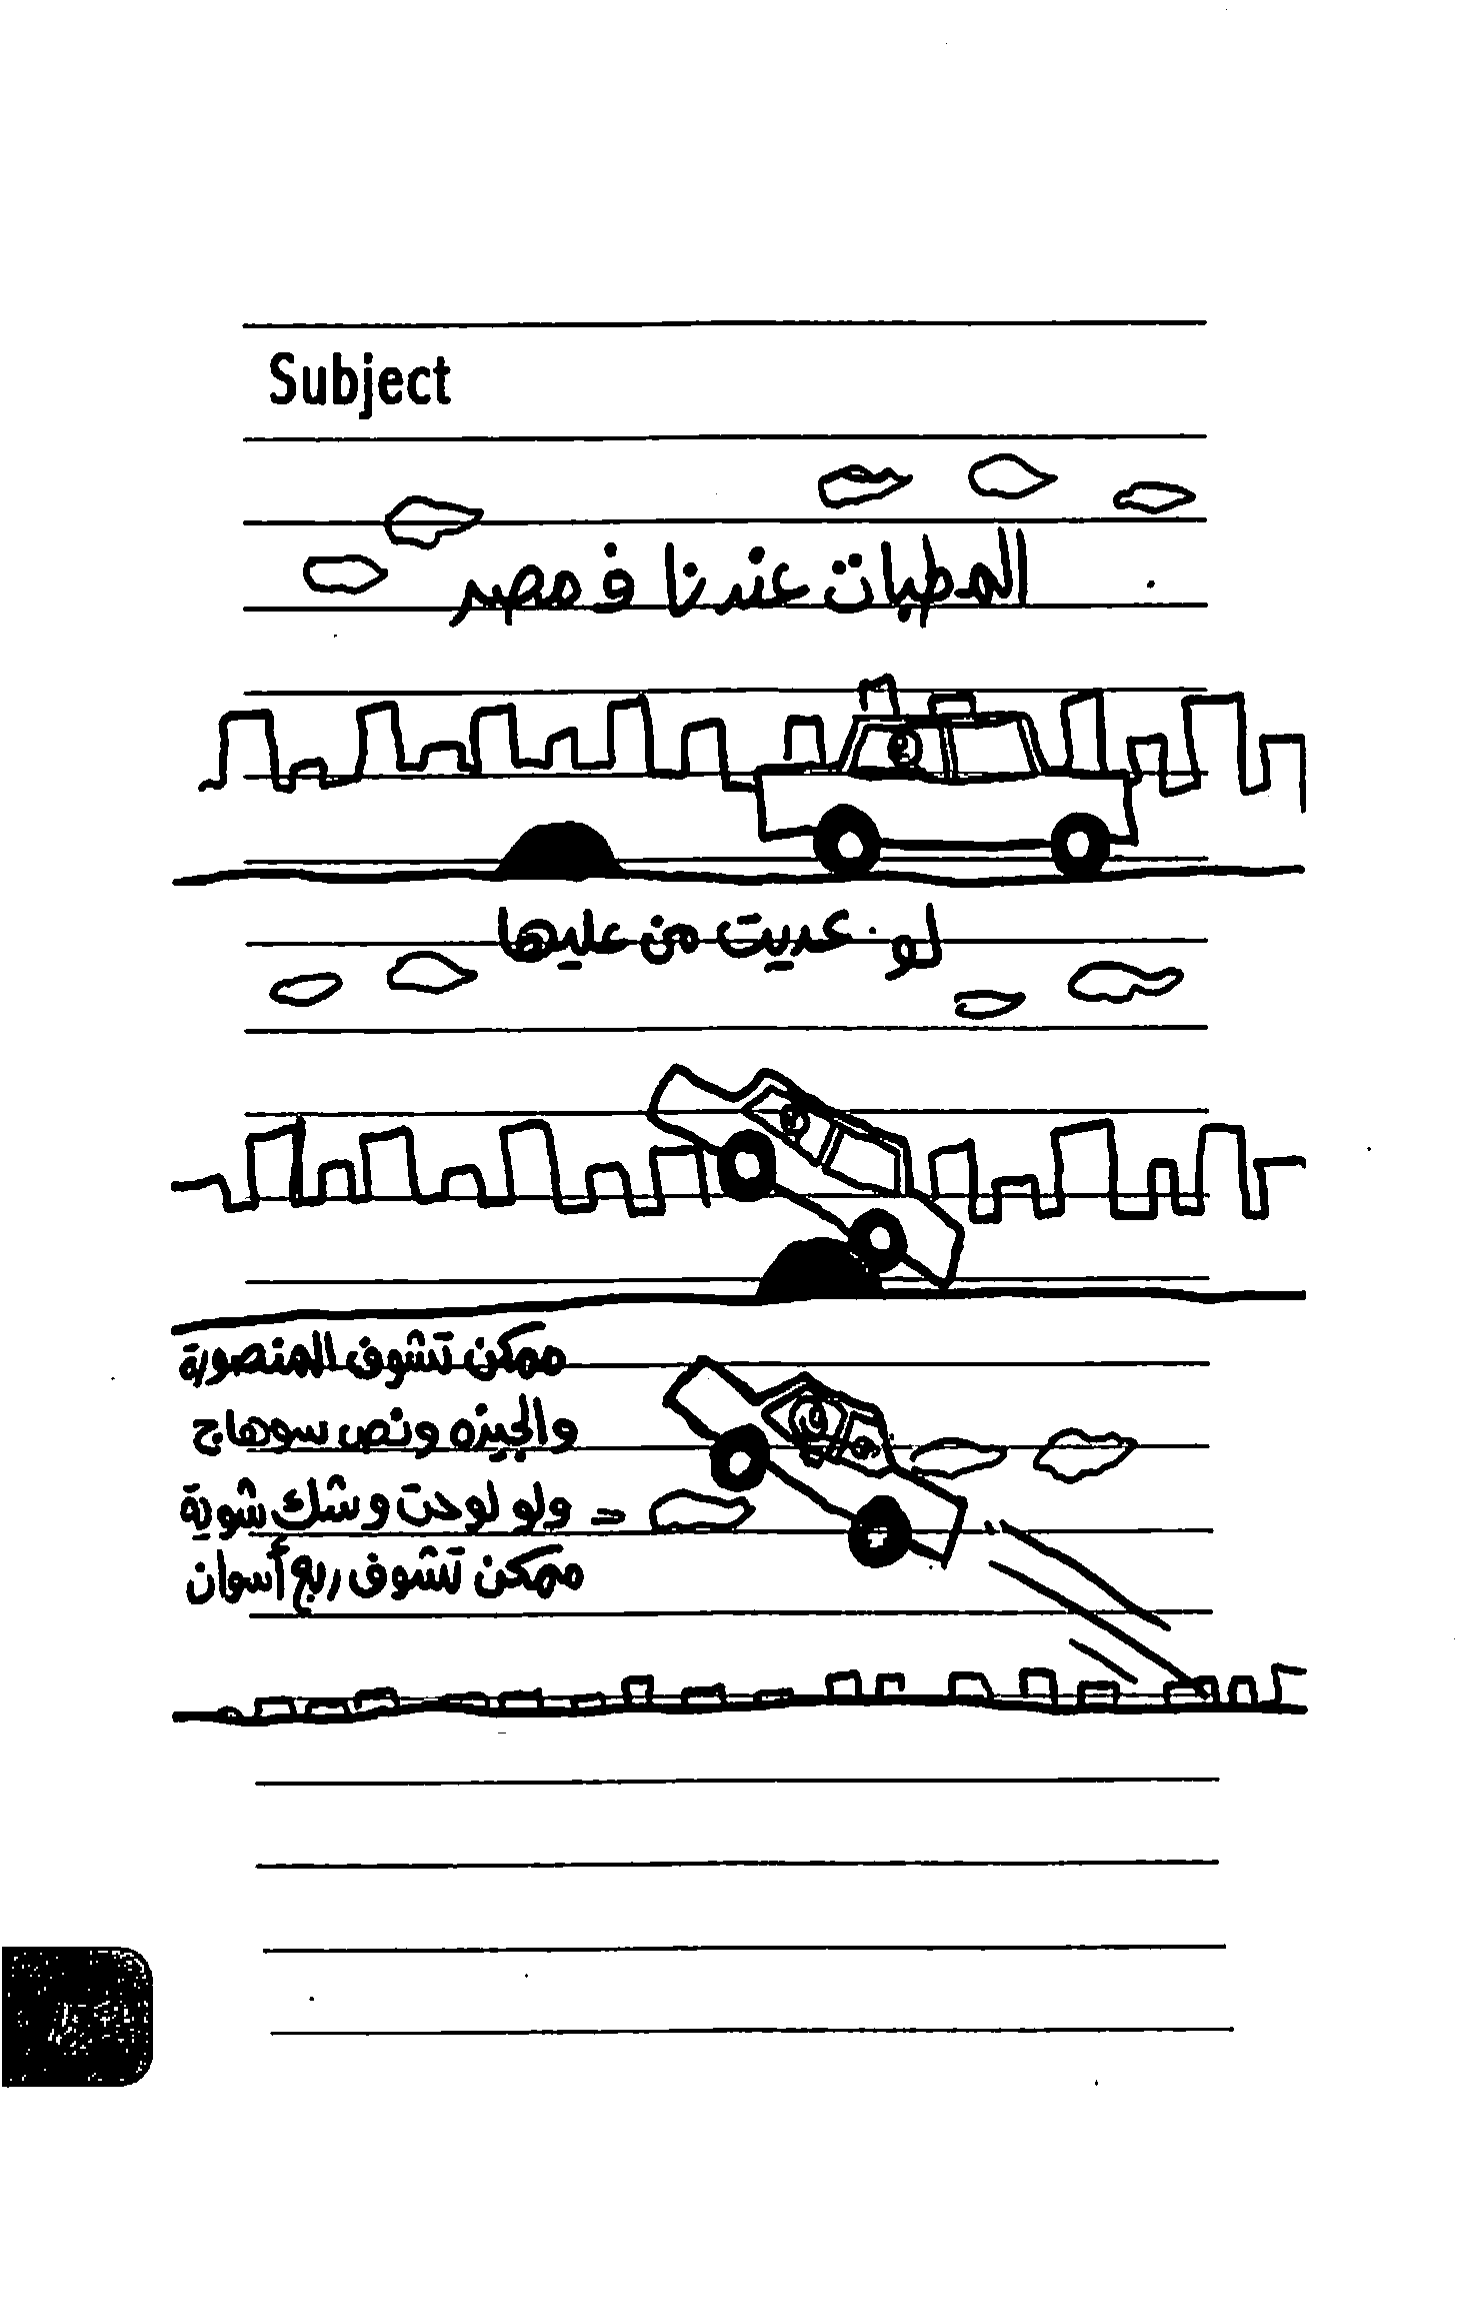 Subject
المطبات عندنا ف مصر
لو عديت من عليها
ممكن تشوف المنصورة
والجيزه ونص سوهاج
= ولو لوحت وشك شوية
ممكن تشوف ربع أسوان